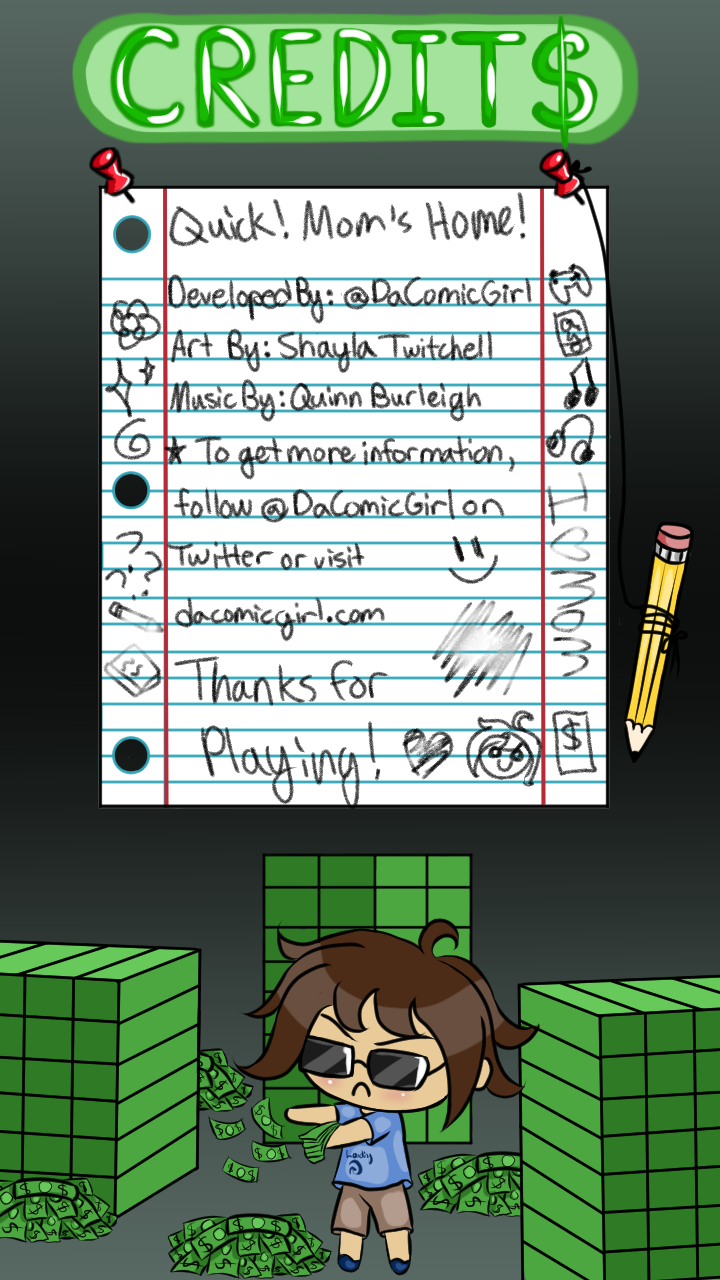 CREDIT$
Quick! Mom's Home!
Developed By: @DaComicGirl
Art By: Shayla Twitchell
Music By: Quinn Burleigh
★ To get more information,
follow @DaComicGirl on
Twitter or visit
dacomicgirl.com
Thanks for
Playing!